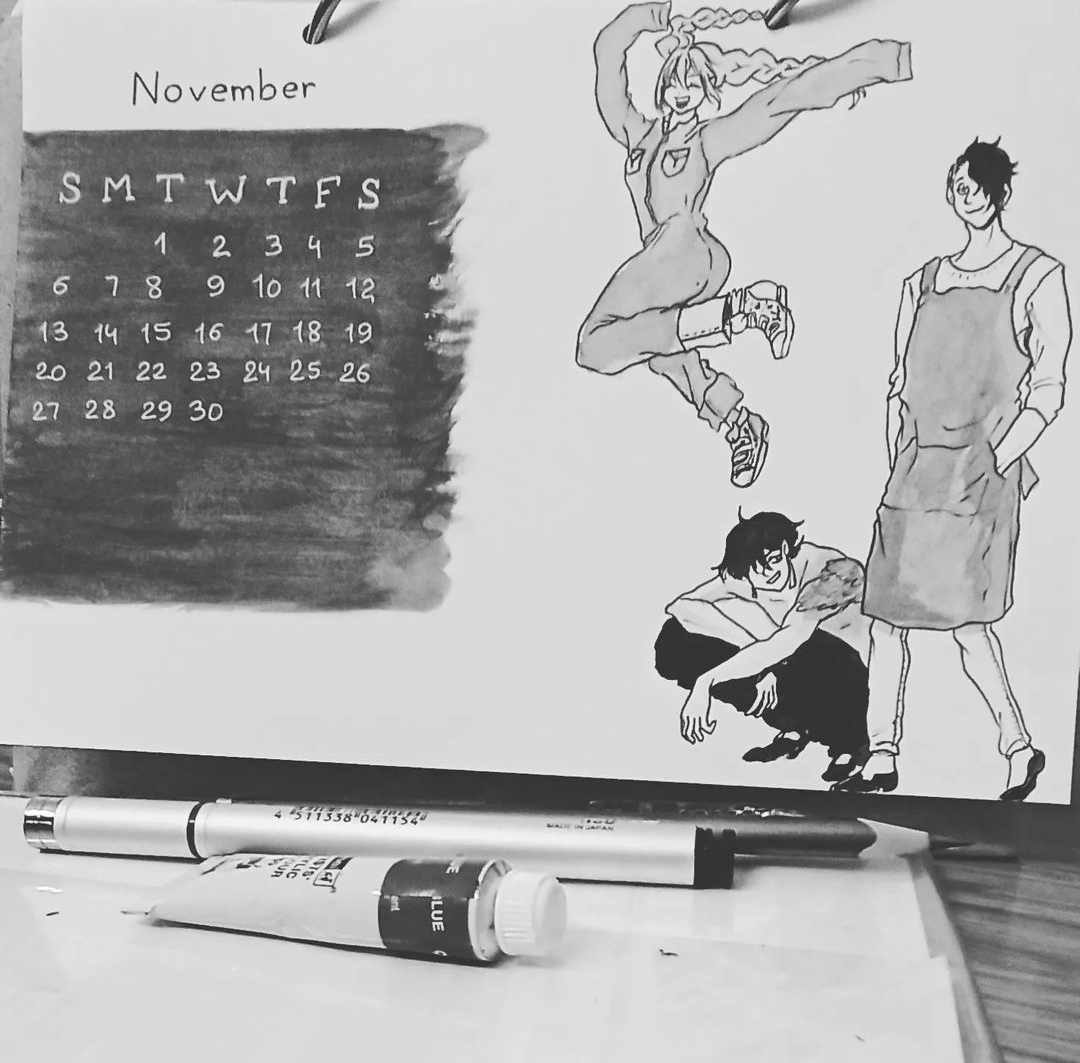 November
S M T W T F S
1 2 3 4 5
6 7 8 9 10 11 12
13 14 15 16 17 18 19
20 21 22 23 24 25 26
27 28 29 30
4 511338 041154
MADE IN JAPAN
BLUE